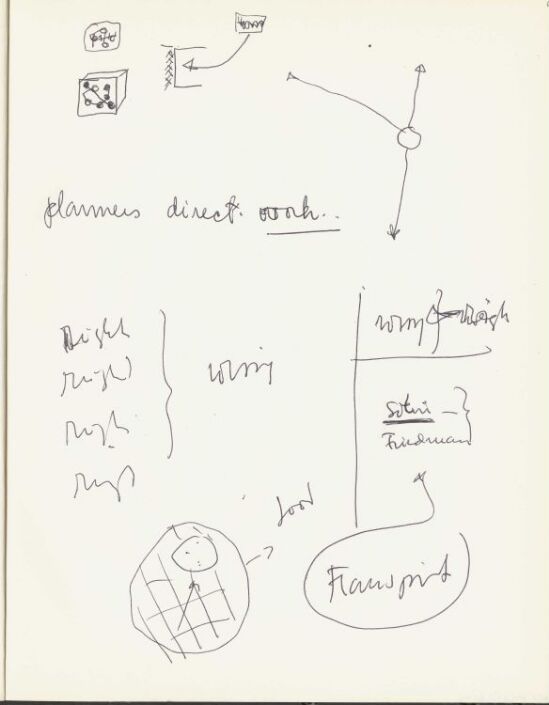 planners direct. work..
Right
right
right
right
wrong
wrong
right
Friedman
food
Transport